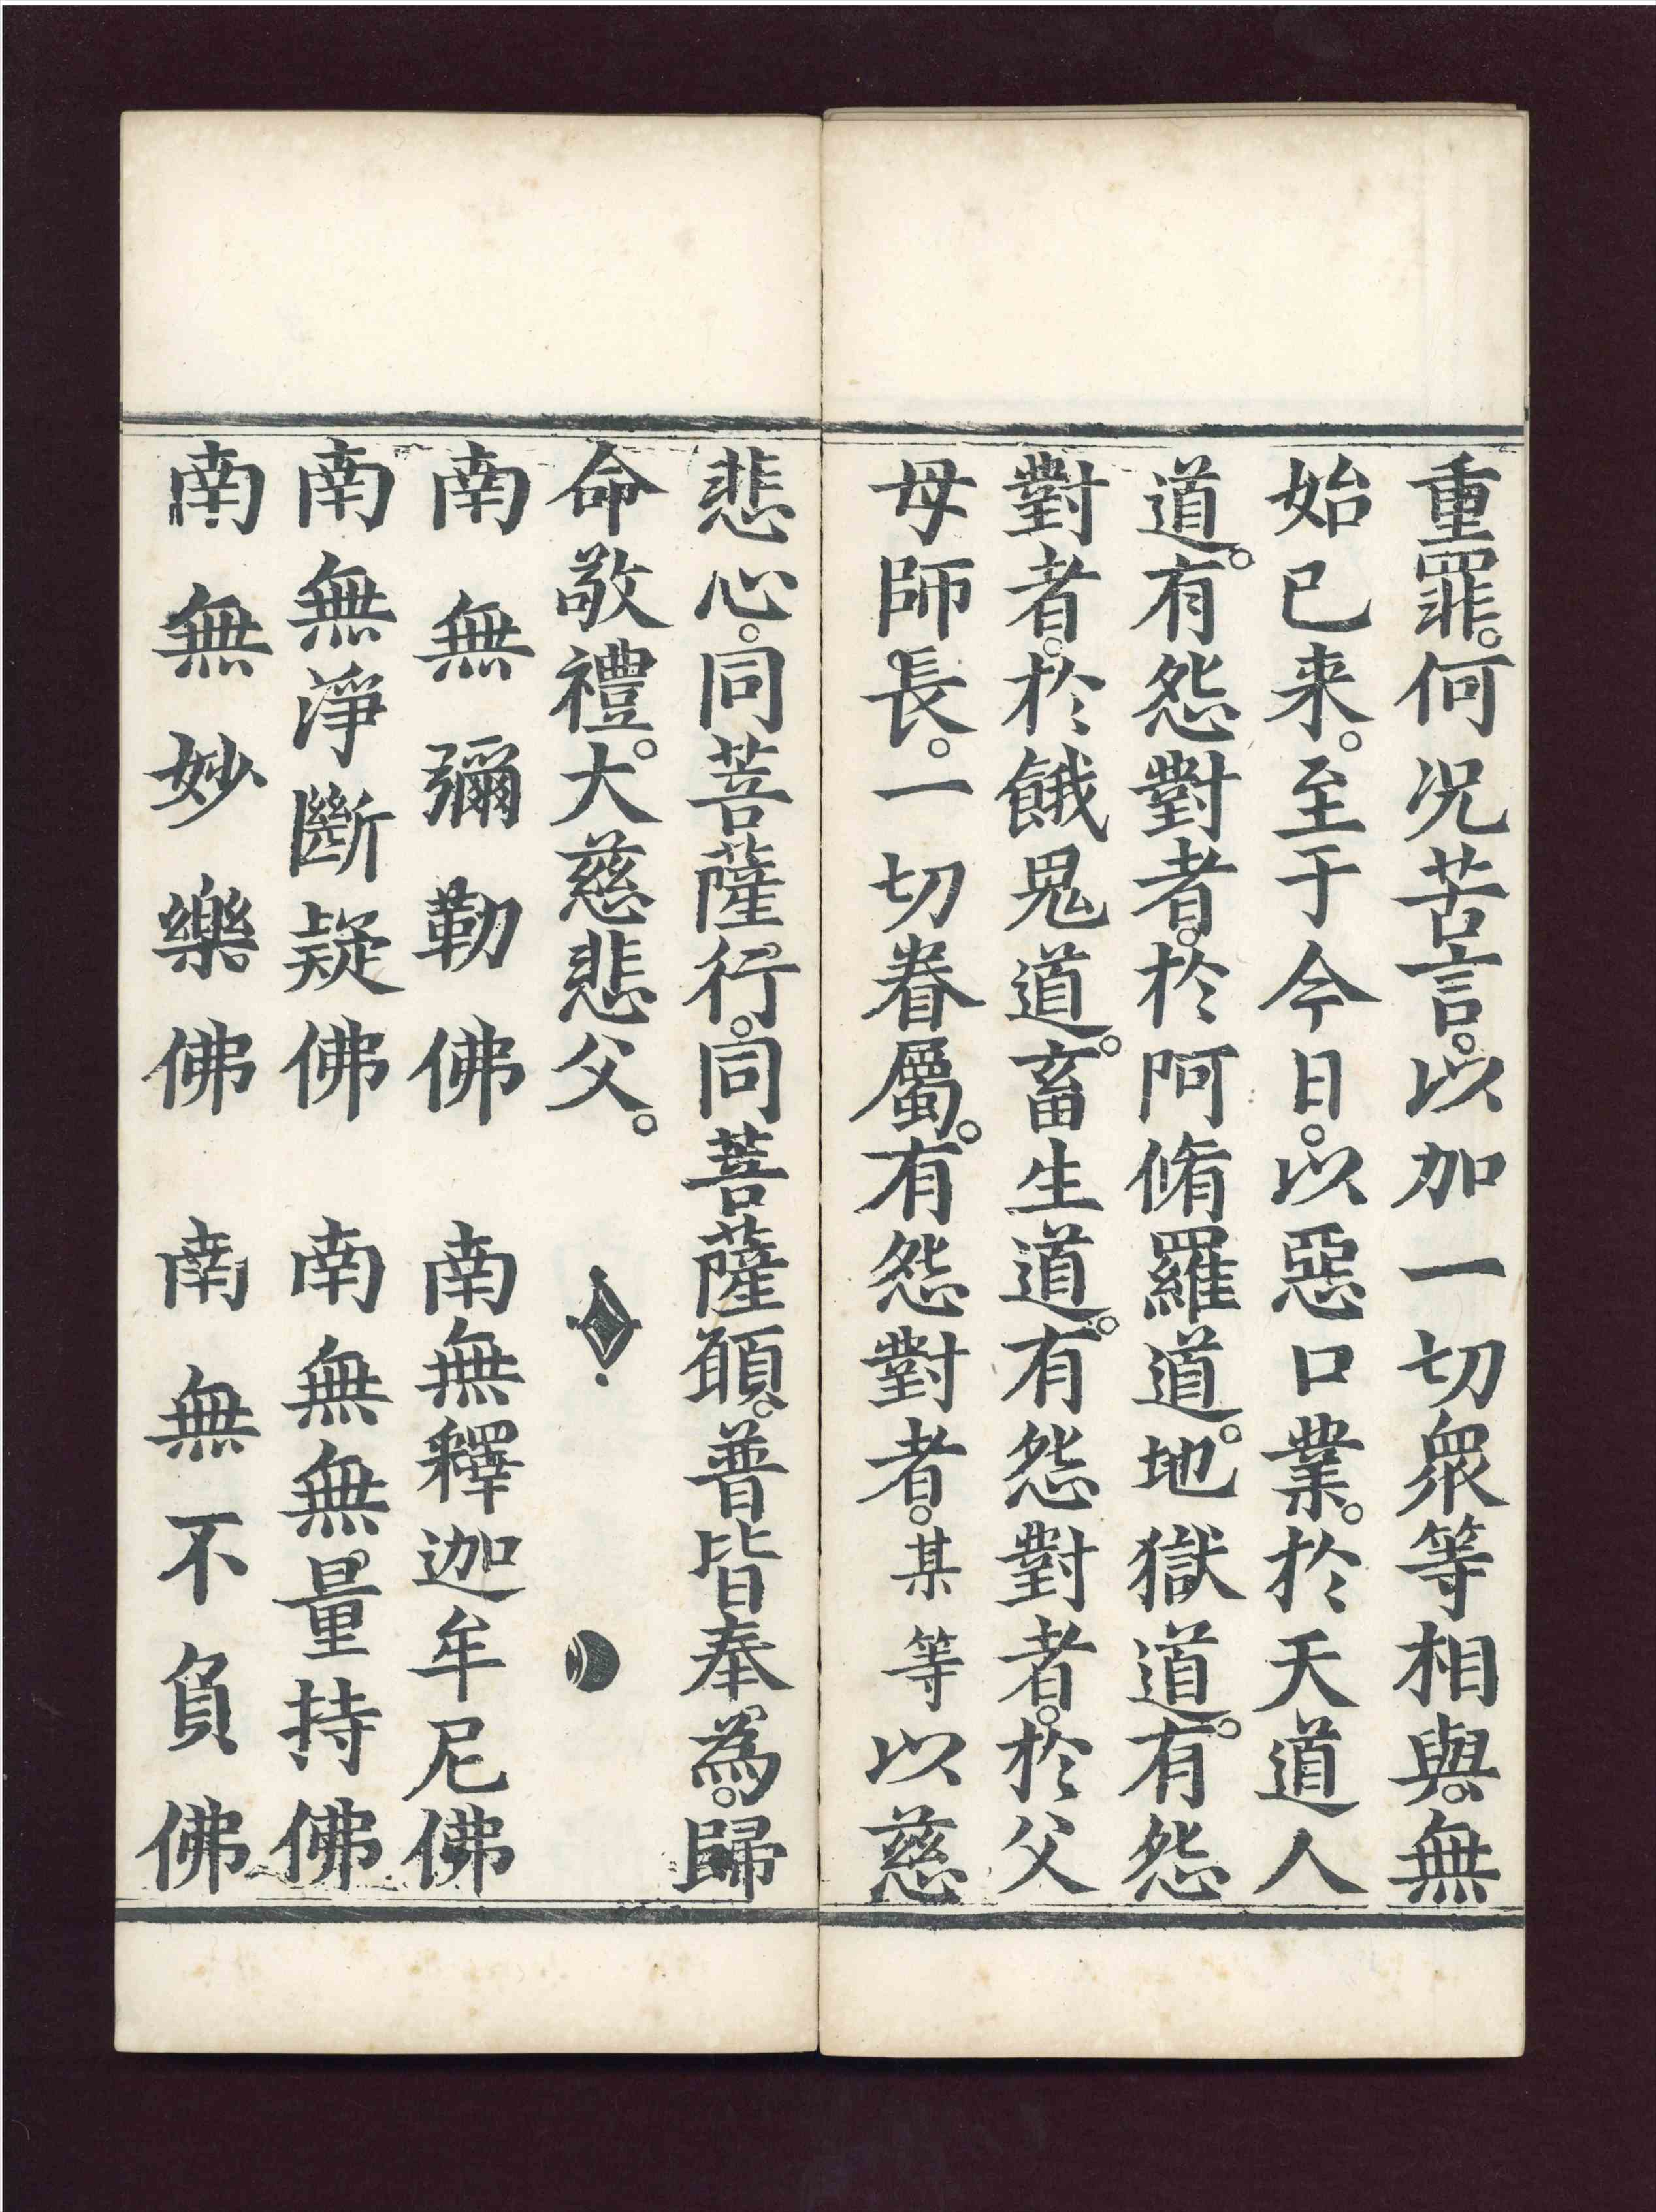 重罪。何况苦言。以加一切衆等相與。無
始已来。至于今日。以惡口業。於天道人
道。有怨對者。於阿脩羅道。地獄道。有怨
對者。於餓鬼道。畜生道。有怨對者。於父
母師長。一切眷屬。有怨對者。某等以慈
悲心。同菩薩行。同菩薩願。普皆奉為。歸
命敬禮。大慈悲父。
南無彌勒佛 南無釋迦牟尼佛
南無淨斷疑佛 南無無量持佛
南無妙樂佛 南無不負佛